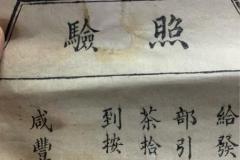 驗照
給發
部引
茶拾
到按
咸豐